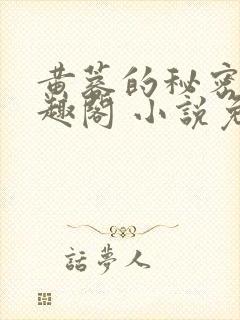 黄蓉的秘密
趣閣 小說免
話夢人